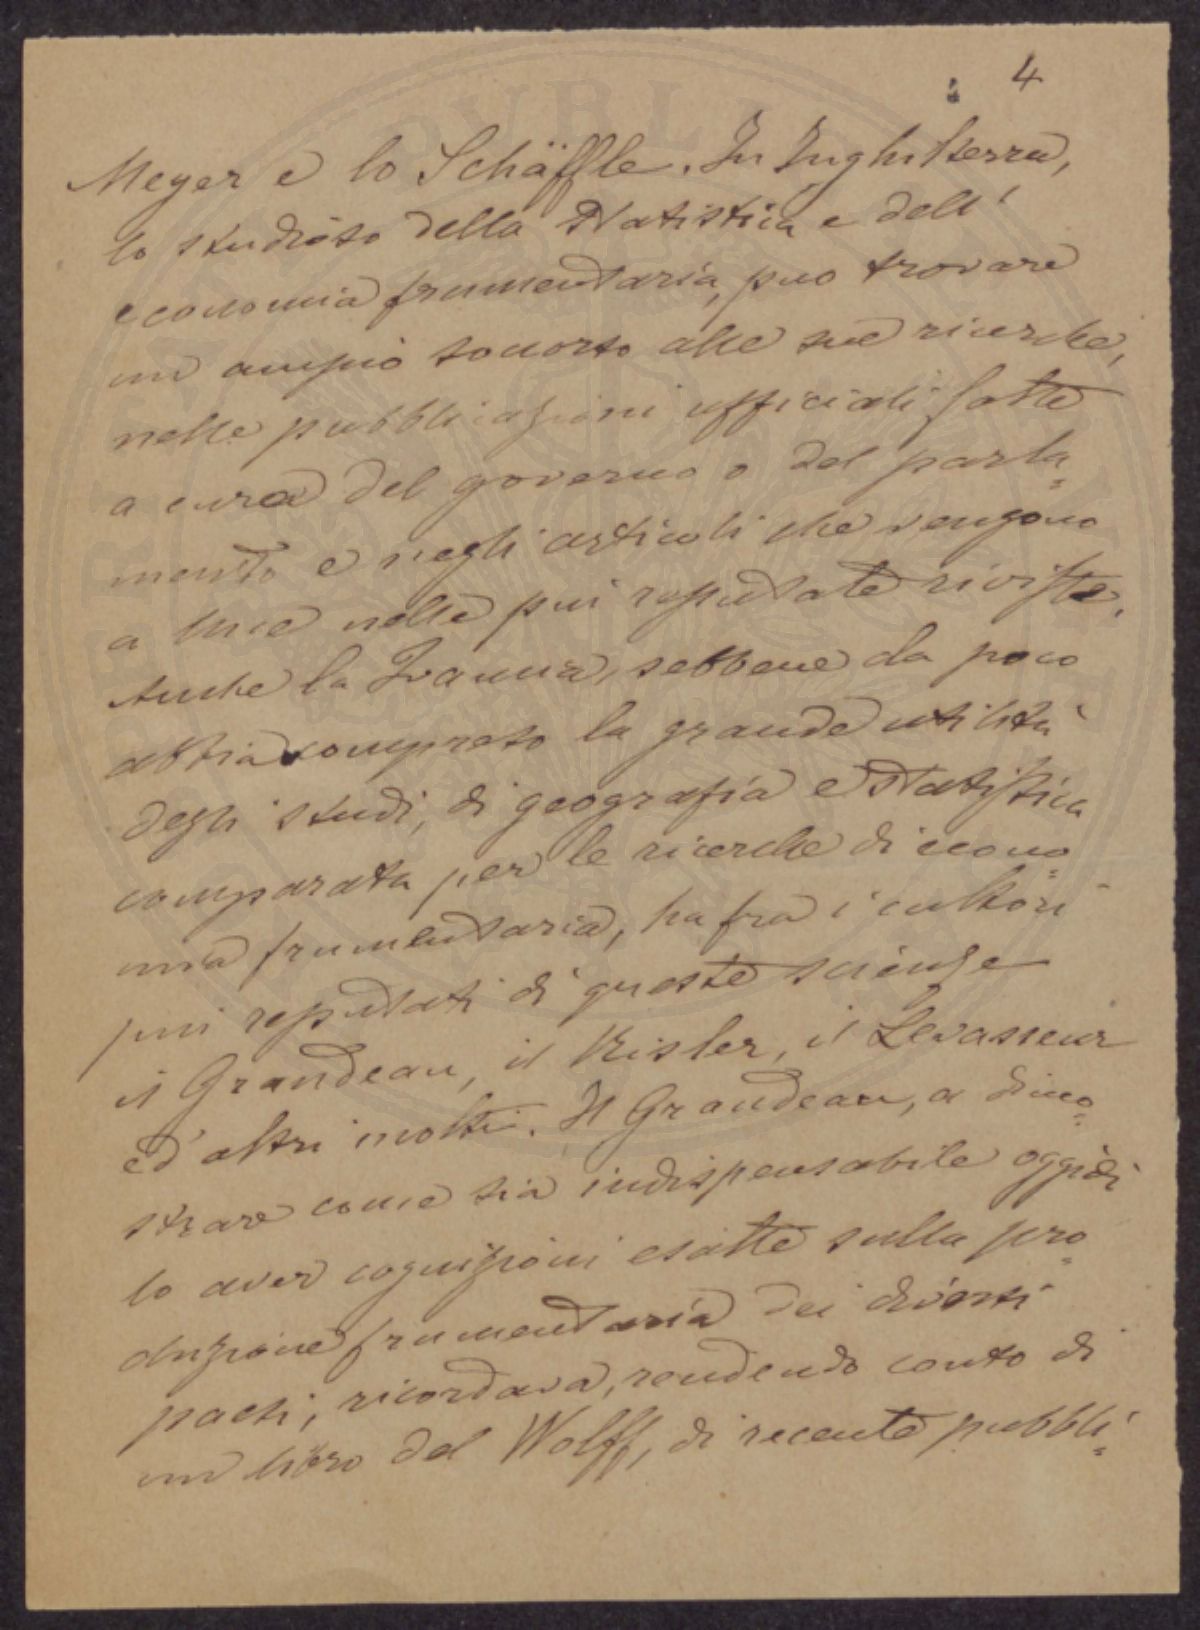 4
Meyer e lo Schäffle. In Inghilterra,
lo studioso della Statistica e dell'
economia frumentaria, può trovare
un ampio soccorso alle sue ricerche,
nelle pubblicazioni ufficiali fatte
a cura del governo o del parla=
mento e negli articoli che vengono
a luce nelle più reputate riviste.
Anche la Francia, sebbene da poco
abbia compreso la grande utilità
degli studi, di geografia e statistica
comparata per le ricerche di econo=
mia frumentaria, ha fra i cultori
più reputati di queste scienze
il Grandeau, il Risler, il Levasseur
ed altri molti. Il Grandeau, a dimo=
strare come sia indispensabile oggidì
lo aver cognizioni esatte sulla pro=
duzione frumentaria dei diversi
paesi, ricordava, rendendo conto di
un libro del Wolff, di recente pubbli=